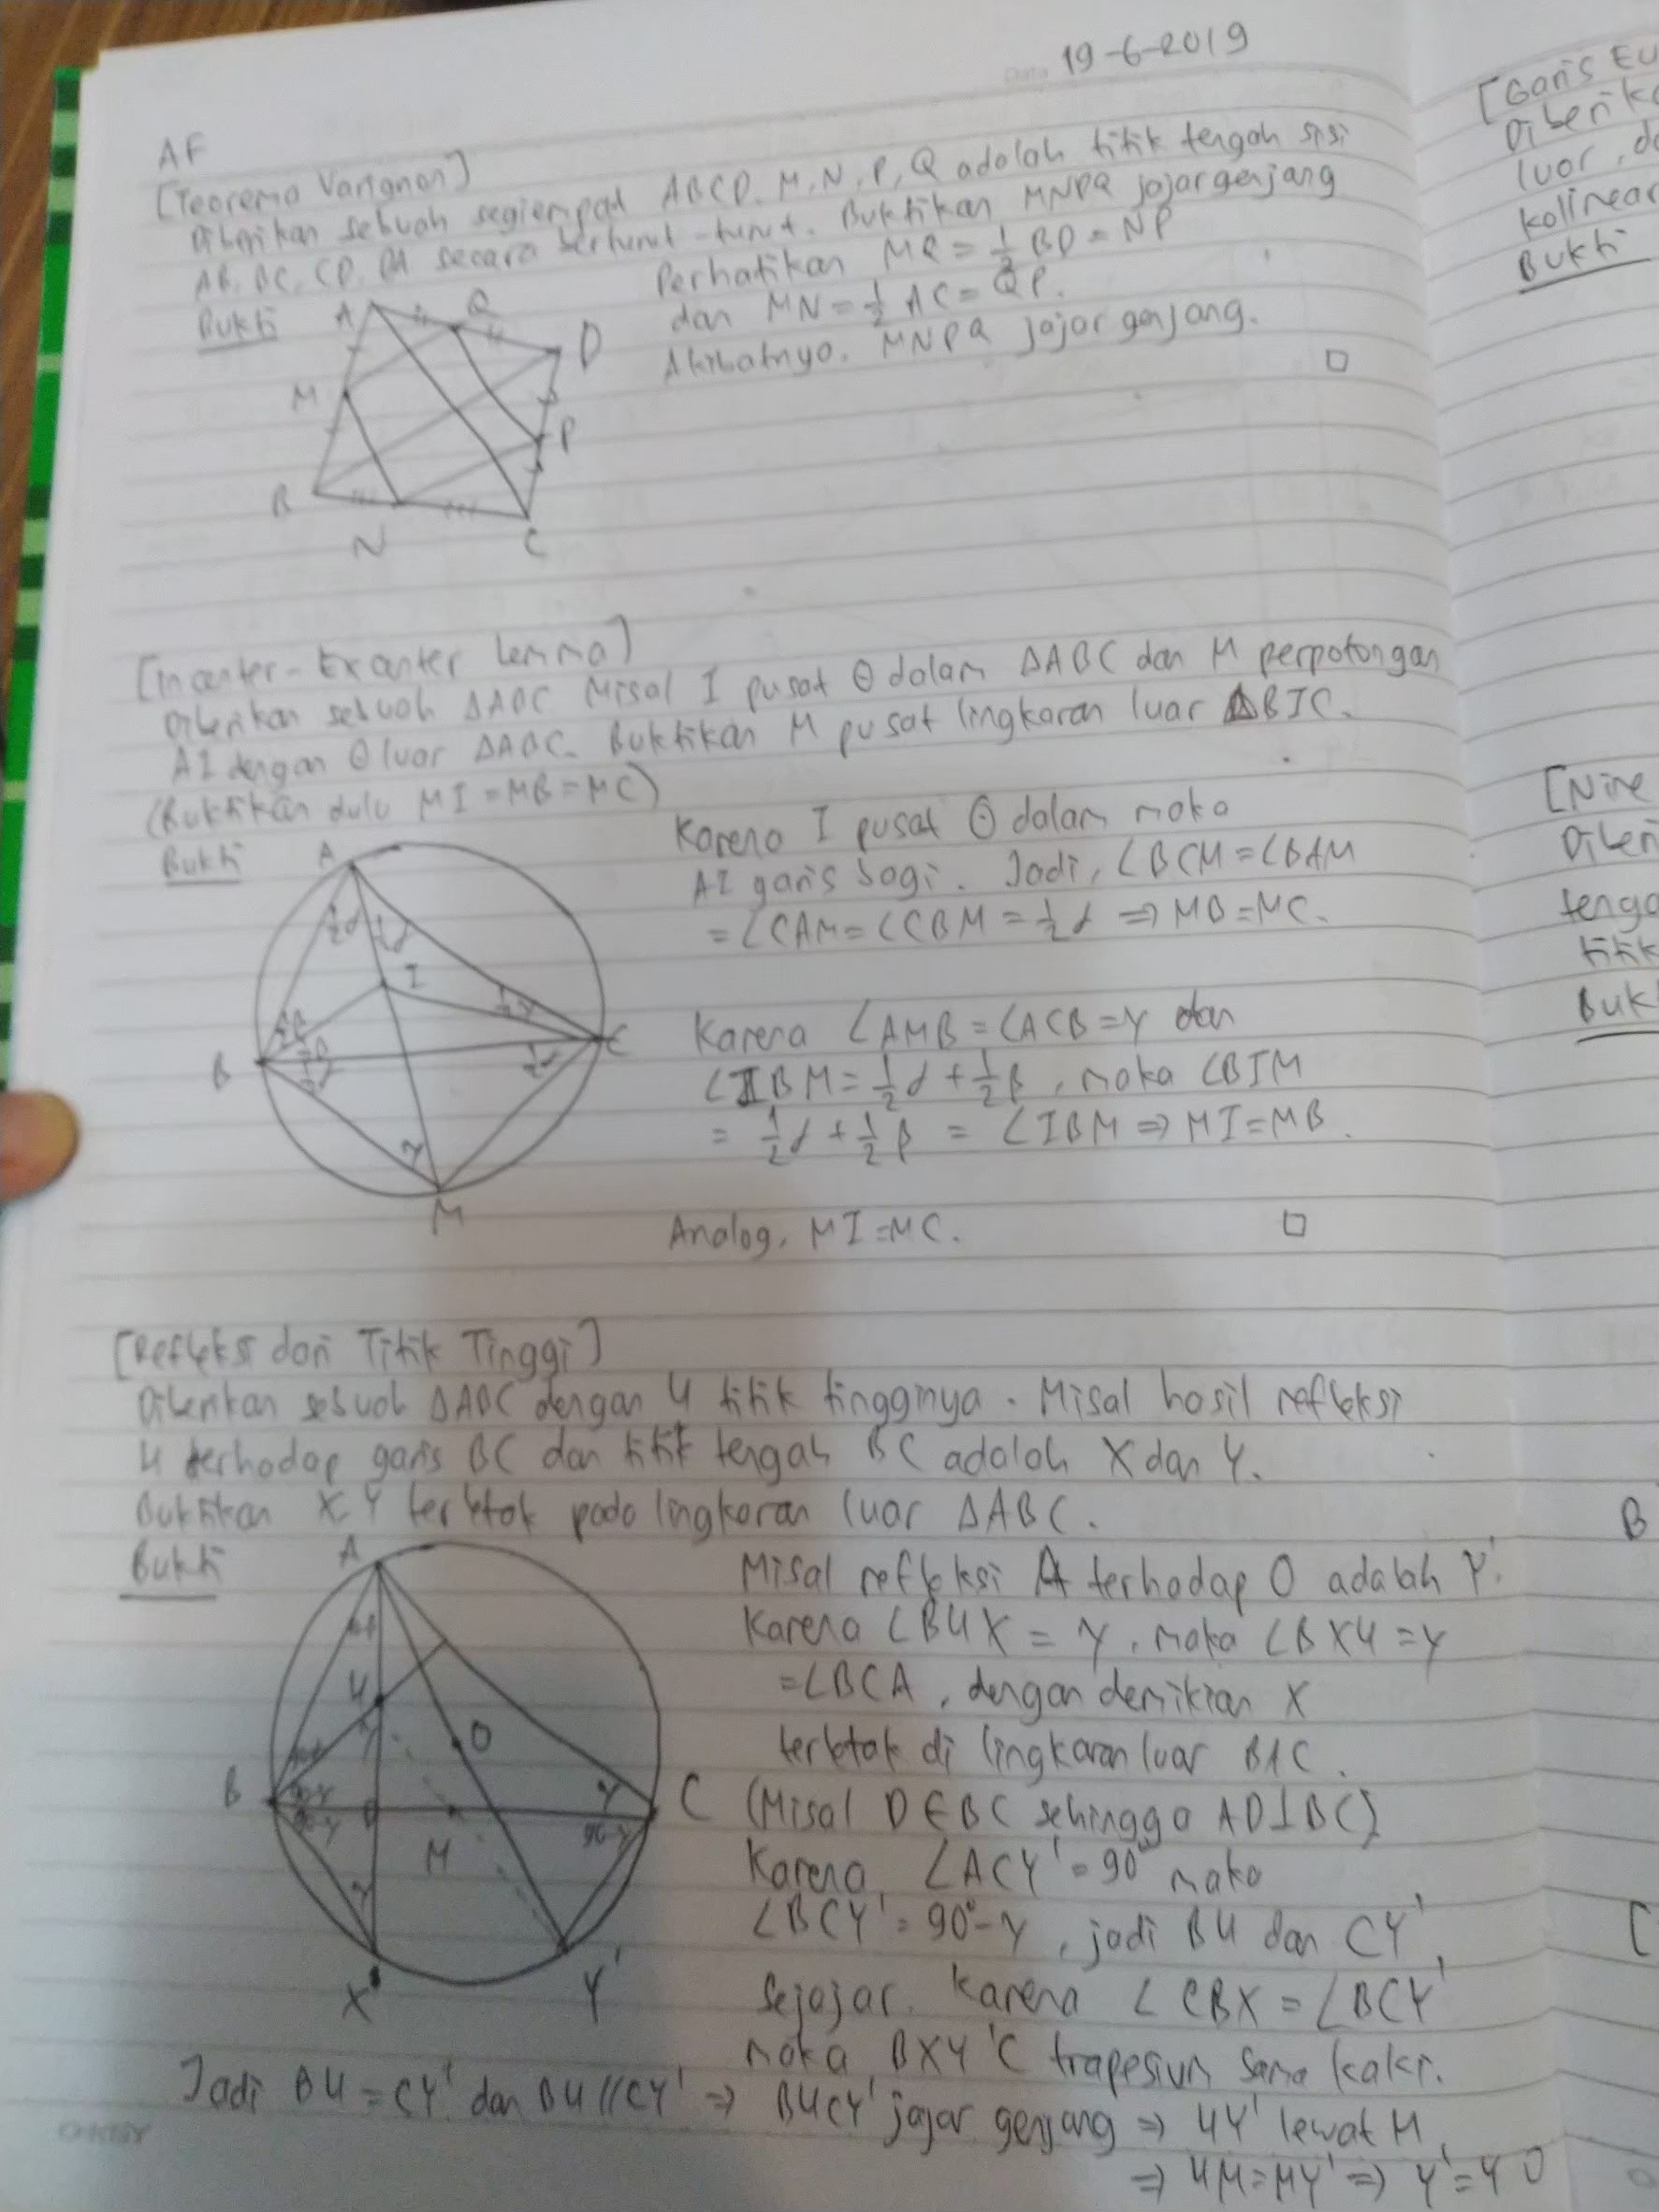 19-6-2019
AF
[Teorema Varignon]
Diberikan sebuah segiempat ABCD. M, N, P, Q adalah titik tengah sisi
AB, BC, CD, DA secara berturut-turut. Buktikan MNPQ jajargenjang
Bukti
Perhatikan MQ = 1/2 BD = NP
dan MN = 1/2 AC = QP.
Akibatnya, MNPQ jajar genjang.
□
A
Q
D
M
P
B
N
C
[Incenter-Excenter Lemma]
Diberikan sebuah ΔABC Misal I pusat ⊙ dalam ΔABC dan M perpotongan
AI dengan ⊙ luar ΔABC. Buktikan M pusat lingkaran luar ΔBIC.
(Buktikan dulu MI = MB = MC)
Bukti
Karena I pusat ⊙ dalam maka
AI garis bagi. Jadi, ∠BCM = ∠BAM
= ∠CAM = ∠CBM = 1/2 α ⇒ MB = MC.
Karena ∠AMB = ∠ACB = γ dan
∠IBM = 1/2 α + 1/2 β, maka ∠BIM
= 1/2 α + 1/2 β = ∠IBM ⇒ MI = MB.
Analog, MI = MC.
□
A
1/2 α 1/2 α
I
1/2 γ
1/2 β
B
1/2 β
1/2 α
1/2 α
C
γ
M
[Refleksi dari Titik Tinggi]
Diberikan sebuah ΔABC dengan H titik tingginya. Misal hasil refleksi
H terhadap garis BC dan titik tengah BC adalah X dan Y.
Buktikan X, Y terletak pada lingkaran luar ΔABC.
Bukti
Misal refleksi A terhadap O adalah Y'.
Karena ∠BHX = γ, maka ∠BXH = γ
= ∠BCA, dengan demikian X
terletak di lingkaran luar BAC.
(Misal D ∈ BC sehingga AD ⊥ BC)
Karena ∠ACY' = 90° maka
∠BCY' = 90° - γ, jadi BH dan CY'
sejajar. Karena ∠CBX = ∠BCY'
maka BXY'C trapesium sama kaki.
Jadi BH = CY' dan BH // CY' ⇒ BHCY' jajar genjang ⇒ HY' lewat M
⇒ HM = MY' ⇒ Y' = Y □
A
H
γ
O
B
90-γ
γ
C
90-γ
M
90-γ
γ
X
Y'
[Garis Eu
Diberika
luar, da
kolinear
Bukti
[Nine
Diberi
tenga
titik
Buk
B
[
OKEY